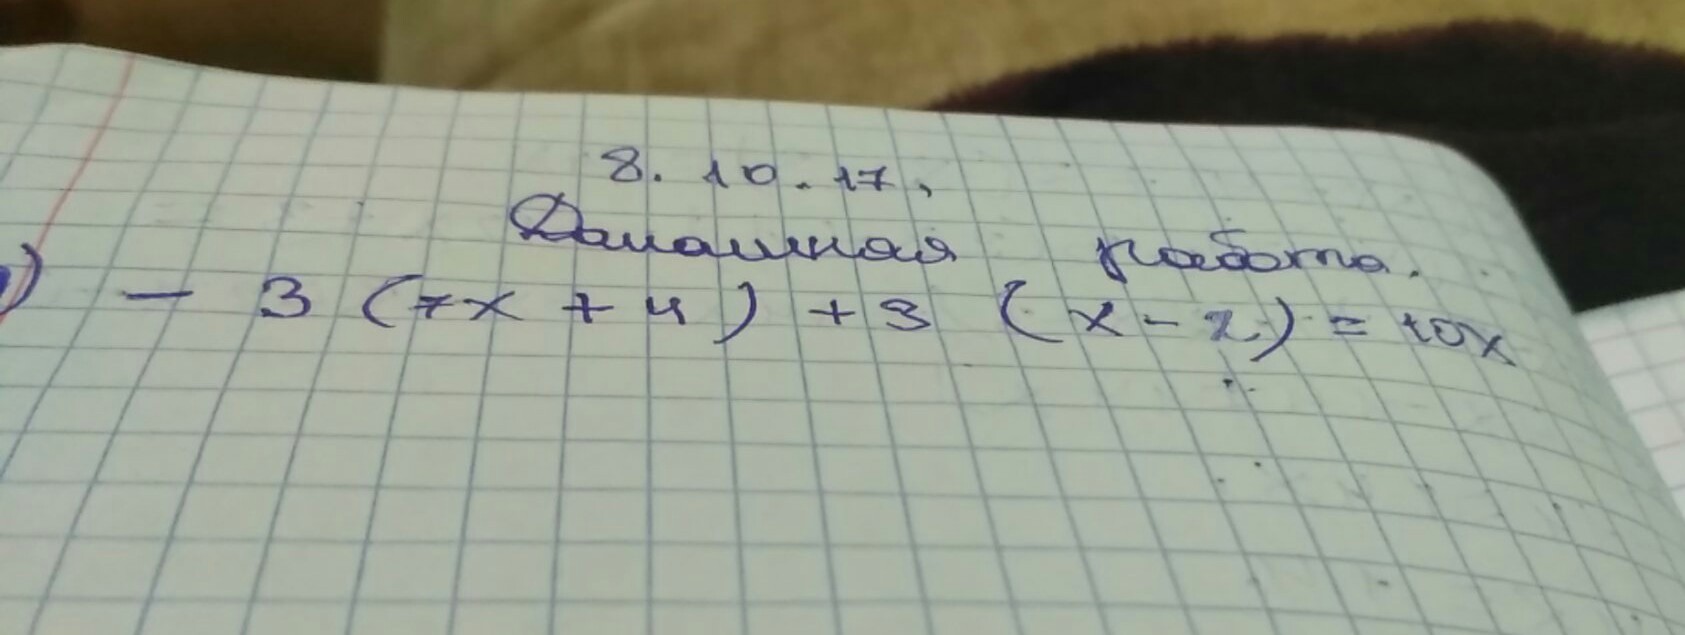 8.10.17.
Домашняя работа.
) - 3 (7x + 4) + 3 (x - 2) = 10x